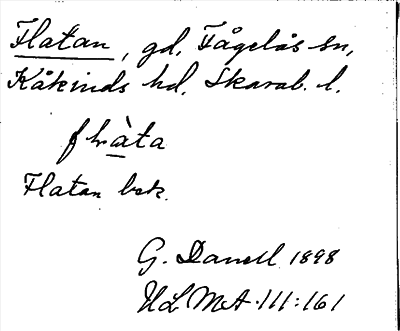 Flatan, gd, Fågelås sn,
Kåkinds hd. Skarab. l.
Flatan bek.
G. Danell 1898
ULMA. 111:161